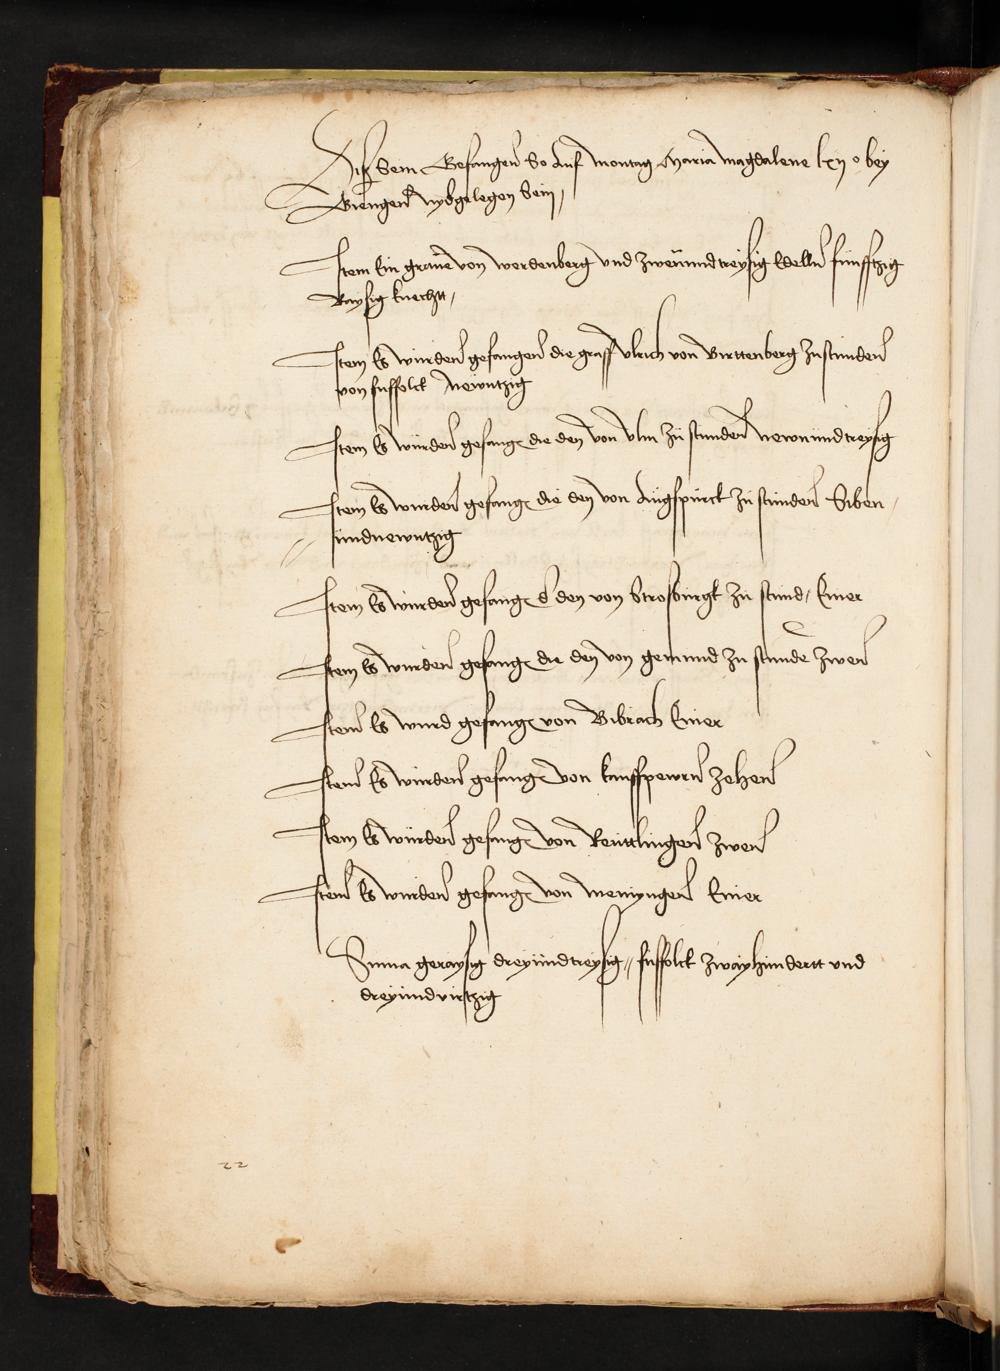 Diß sein Gefangen So auf montag Maria magdalene lxij o bey
Giengen nydgelegen sein,
Item Ein graue von werdenberg vnd zweiundtreysig Edelln fünfftzig
Raysig knechtt,
Item Es wurden gefangen die graff vlrich von Wirttenberg zustunden
von fusfolck Newntzig
Item Es wurden gefang die den von vlm zu stunden newnundtreysig
Item Es wurden gefang die den von Augspurck zu stunden Siben
undnewntzig
Item Es wurden gefang d den von Strosburgk zu stund, Einer
Item Es wurden gefang die den von gemund zu stunde zwen
Item Es wurd gefang von Bibrach Einer
Item Es wurden gefang von kauffpewrn zehen
Item Es wurden gefang von Reuttlingen zwen
Item Es wurden gefang von memyngen Einer
Suma geraysig dreyundtreysig, fusfolck zwayhundertt vnd
dreyundvirtzig
22